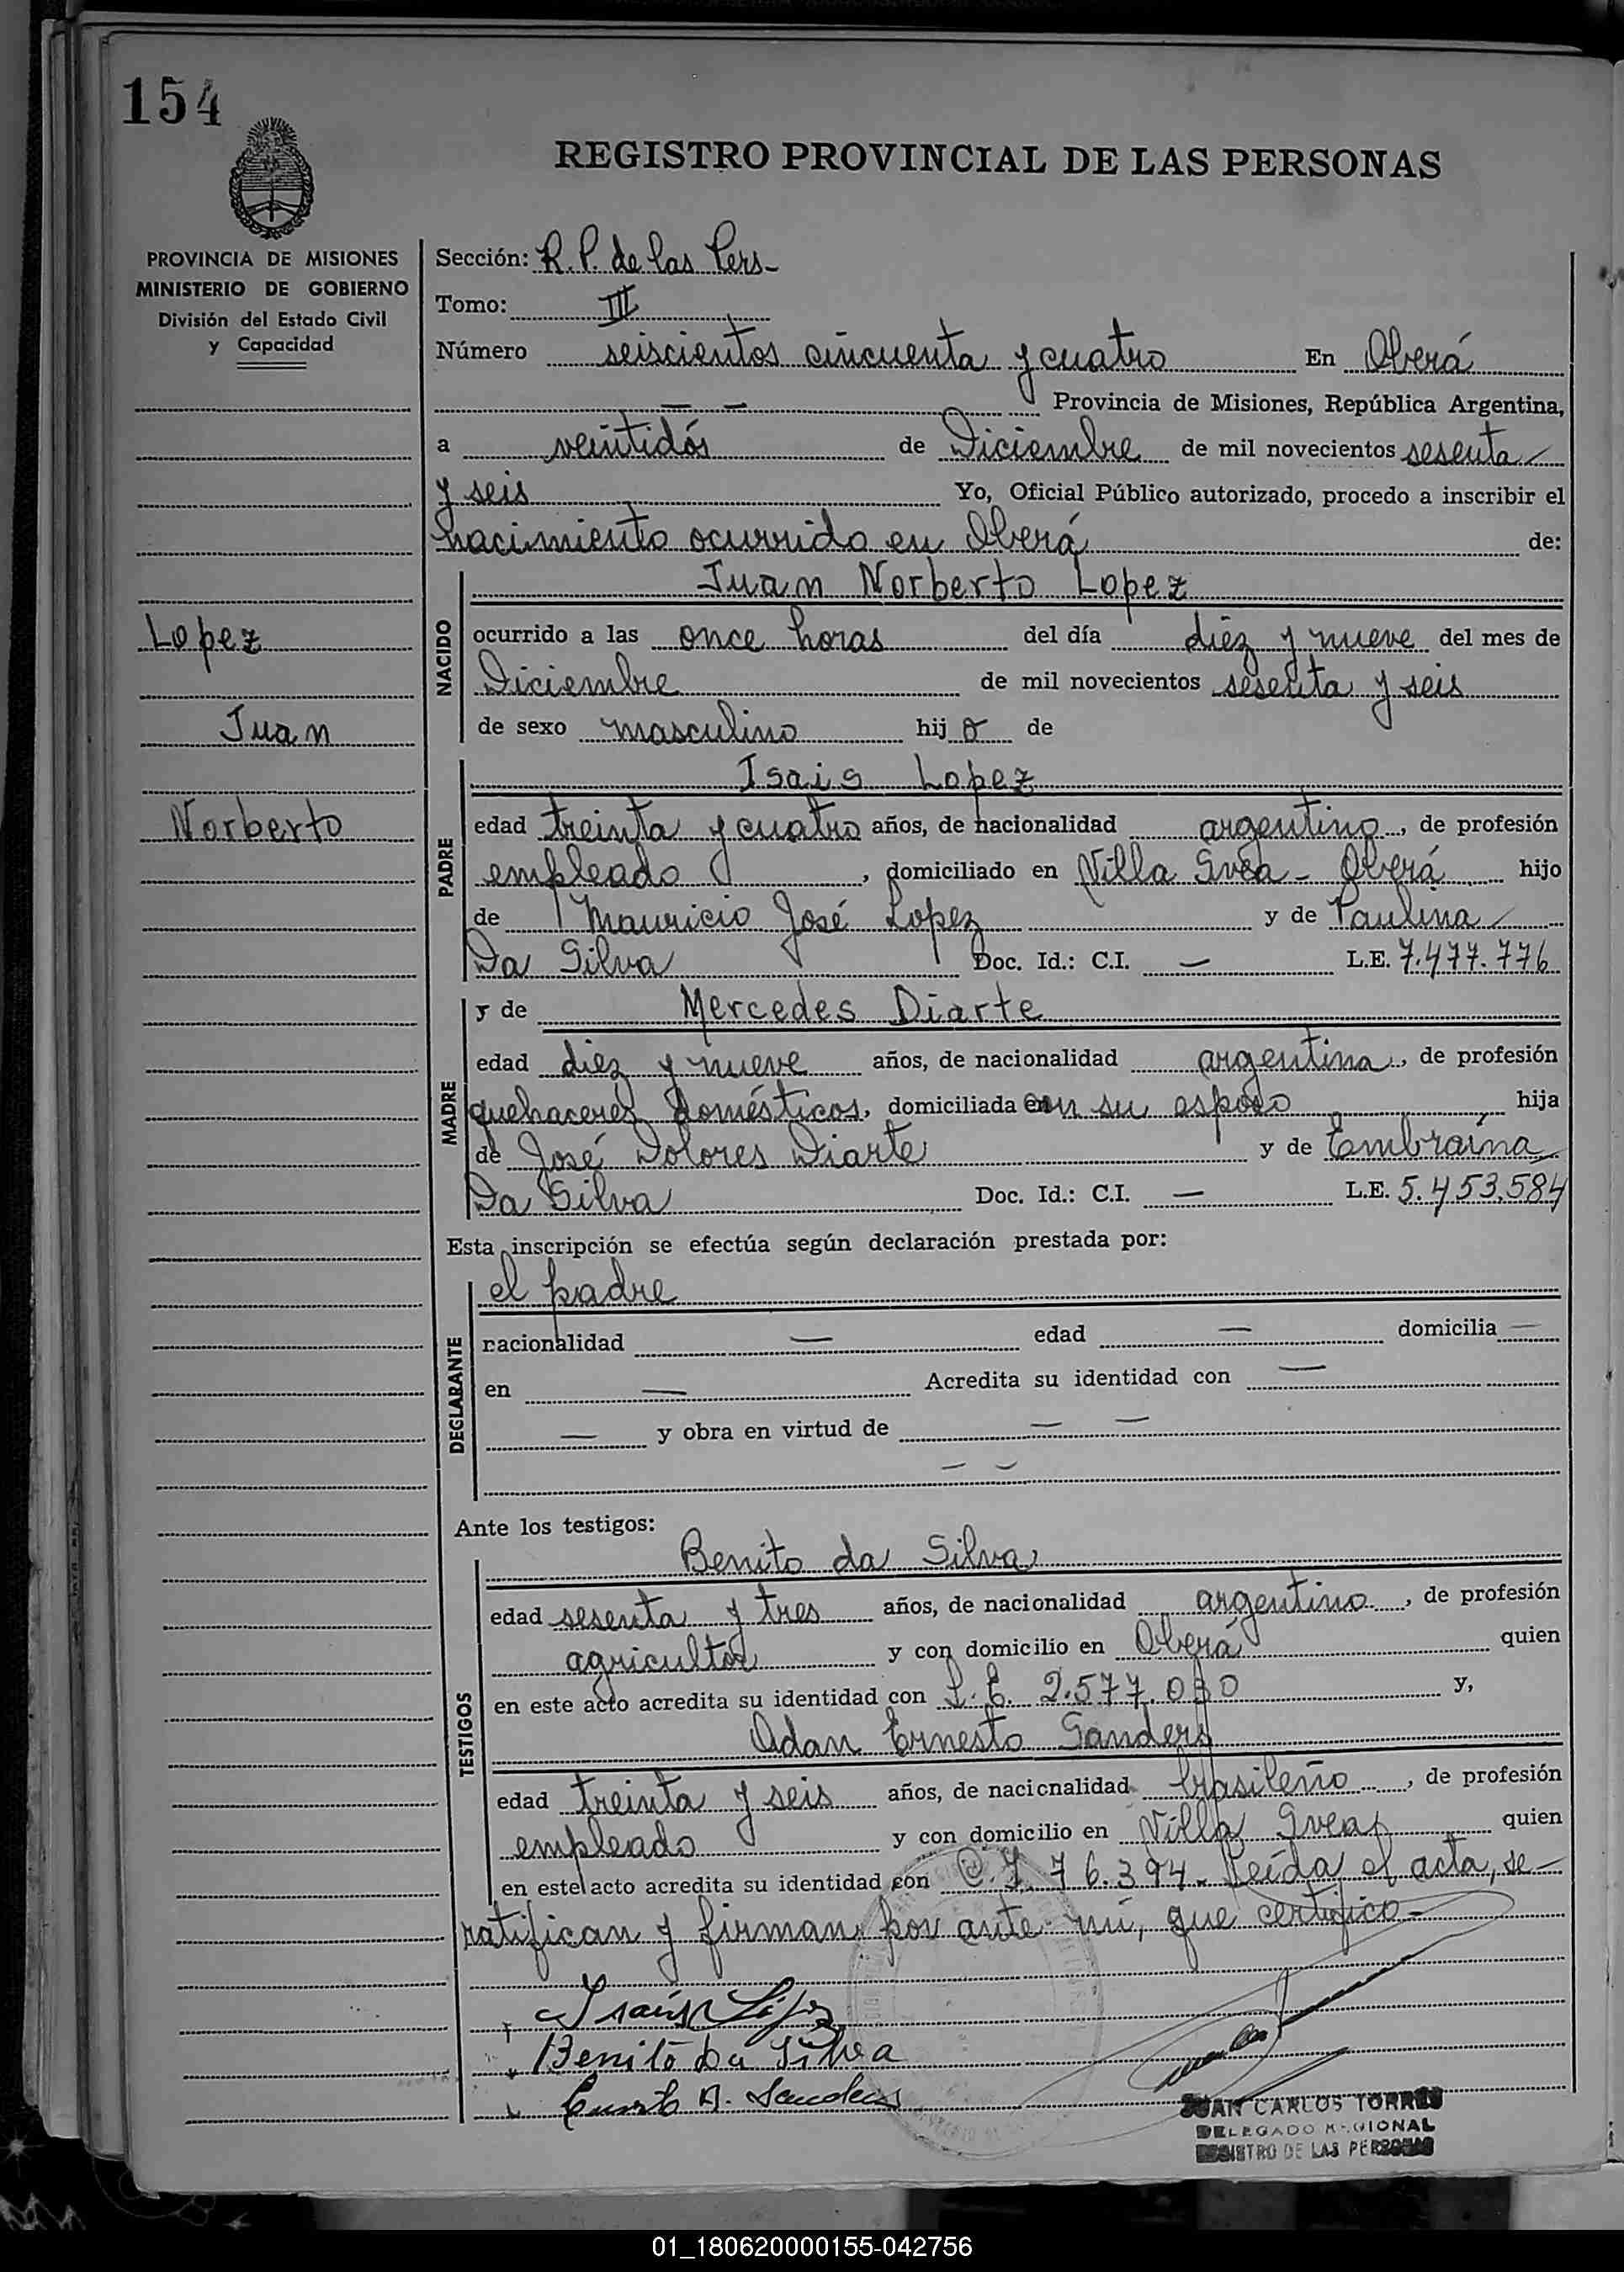 154
REGISTRO PROVINCIAL DE LAS PERSONAS
PROVINCIA DE MISIONES
MINISTERIO DE GOBIERNO
División del Estado Civil
y Capacidad
Lopez
Juan
Norberto
Sección: R. P. de las Pers-
Tomo: III
Número seiscientos cincuenta y cuatro En Oberá
— — Provincia de Misiones, República Argentina,
a veintidós de Diciembre de mil novecientos sesenta
y seis Yo, Oficial Público autorizado, procedo a inscribir el
nacimiento ocurrido en Oberá de:
NACIDO
Juan Norberto Lopez
ocurrido a las once horas del día diez y nueve del mes de
Diciembre de mil novecientos sesenta y seis
de sexo masculino hij o de
PADRE
Isais Lopez
edad treinta y cuatro años, de nacionalidad argentino, de profesión
empleado, domiciliado en Villa Svea - Oberá hijo
de Mauricio José Lopez y de Paulina
Da Silva Doc. Id.: C.I. — L.E. 7.477.776
MADRE
y de Mercedes Diarte
edad diez y nueve años, de nacionalidad argentina, de profesión
quehaceres domésticos, domiciliada con su esposo hija
de José Dolores Diarte y de Embraína
Da Silva Doc. Id.: C.I. — L.E. 5.453.584
Esta inscripción se efectúa según declaración prestada por:
DECLARANTE
el padre
nacionalidad — edad — domicilia —
en — Acredita su identidad con —
— y obra en virtud de — —
— —
Ante los testigos:
TESTIGOS
Benito da Silva
edad sesenta y tres años, de nacionalidad argentino, de profesión
agricultor y con domicilio en Oberá quien
en este acto acredita su identidad con L. E. 2.577.030 y,
Adan Ernesto Sanders
edad treinta y seis años, de nacionalidad brasileño, de profesión
empleado y con domicilio en Villa Svea quien
en este acto acredita su identidad con C. I. 76.394. Leída el acta, se-
ratifican y firman por ante mí, que certifico-
Isaís Lópz
Benito Da Silva
Ernesto A. Sanders
JUAN CARLOS TORRES
DELEGADO REGIONAL
REGISTRO DE LAS PERSONAS
01_180620000155-042756